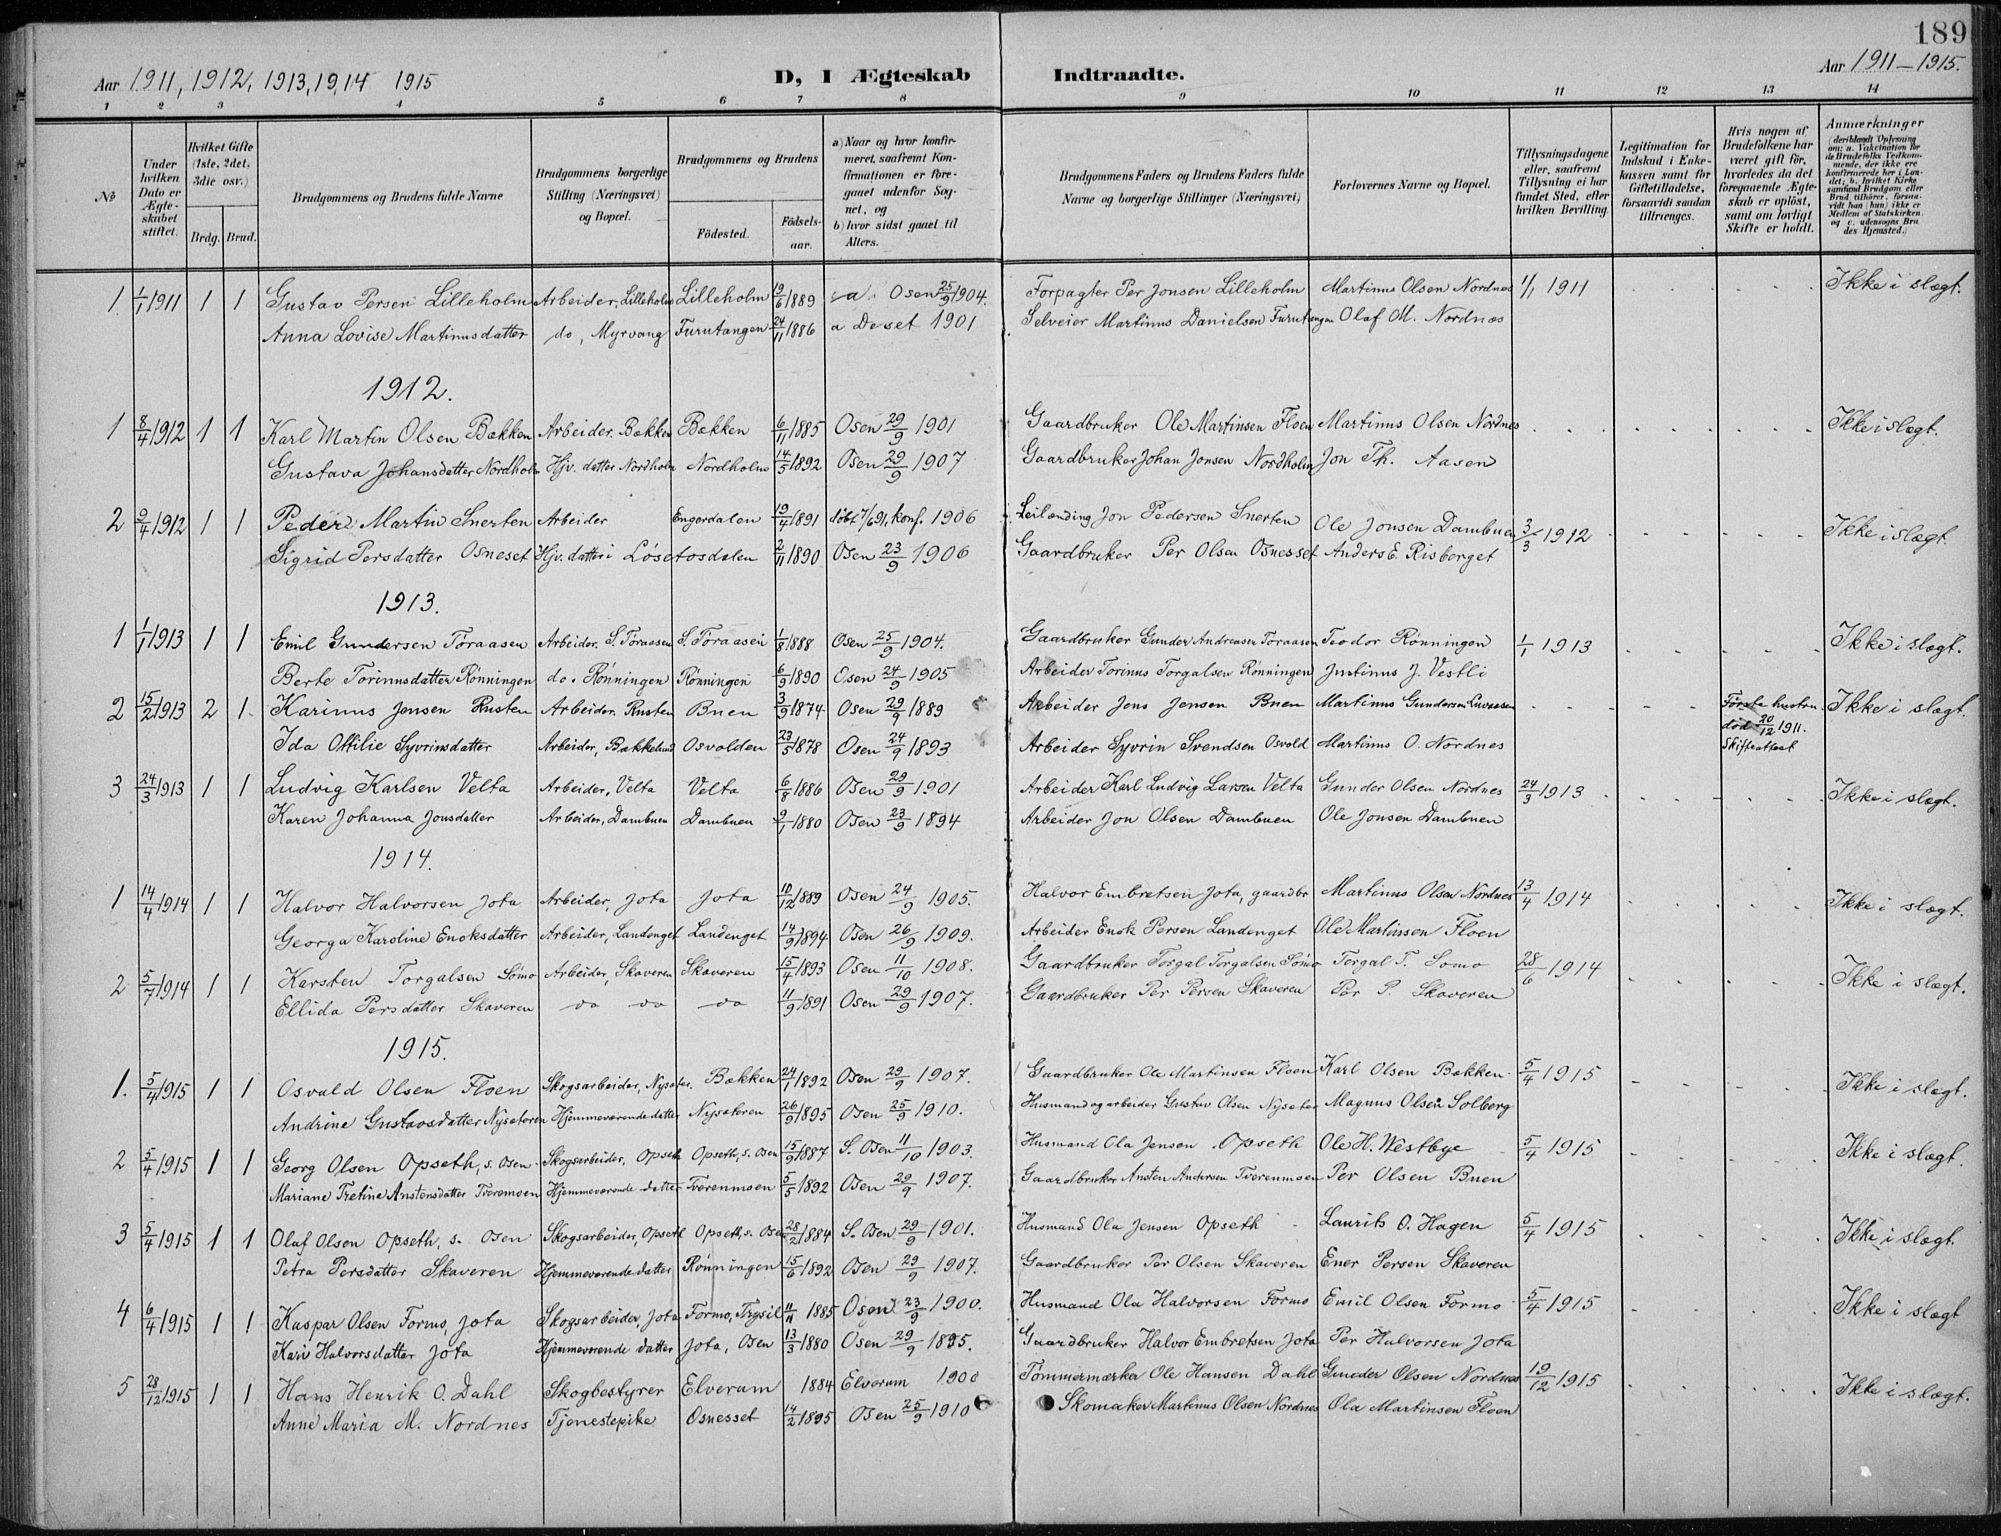 189
Aar 1911, 1912, 1913, 19,14 1915 D, I Ægteskab Indtraadte. Aar 1911–1915.
1 2 3 4 5 6 7 8 9 10 11 12 13 14
No
Under hvilken Dato er Ægteskabet stiftet.
Hvilket Gifte (1ste, 2det, 3die osv.) Brdg. Brud.
Brudgommens og Brudens fulde Navne
Brudgommens borgerlige Stilling (Næringsvei) og Bopæl.
Brudgommens og Brudens Fødested. Fødselsaar.
a) Naar og hvor konfirmeret, saafremt Konfirmationen er foregaaet udenfor Sognet, og b) hvor sidst gaaet til Alters.
Brudgommens Faders og Brudens Faders fulde Navne og borgerlige Stillinger (Næringsvei)
Forlovernes Navne og Bopæl.
Tillysningsdagene eller, saafremt Tillysning ei har fundet Sted, efter hvilken Bevilling.
Legitimation for Indskud i Enkekassen samt for Giftetilladelse, forsaavidt saadan tiltrænges.
Hvis nogen af Brudefolkene har været gift før, hvorledes da det foregaaende Ægteskab er opløst, samt om lovligt Skifte er holdt.
Anmærkninger (deriblandt Oplysning om: a. Vakcination for de Brudefolks Vedkommende, der ikke ere konfirmerede her i Landet; b. hvilket Kirkesamfund Brudgom eller Brud tilhører, forsaavidt han (hun) ikke er Medlem af Statskirken, og c. udensogns Brudes Hjemsted.)
1 1/1 1911 1 1 Gustav Persen Lilleholm Arbeider, Lilleholm Lilleholm 19/6 1889 a. Osen 25/9 1904. Forpagter Per Jonsen Lilleholm Martinus Olsen Nordnes 1/1 1911 Ikke i slægt.
Anna Lovise Martinusdatter do, Myrvang Furutangen 24/11 1886 a Deset 1901 Selveier Martinus Danielsen Furutangen Olaf M. Nordnæs
1912.
1 8/4 1912 1 1 Karl Martin Olsen Bækken Arbeider. Bækken Bækken 6/11 1885 Osen 29/9 1901 Gaardbruker Ole Martinsen Floen Martinus Olsen Nordnes Ikke i slægt.
Gustava Johansdatter Nordholm Hjv. datter Nordholm Nordholm 14/5 1892 Osen 29/9 1907 Gaardbruker Johan Jonsen Nordholm Jon Th. Aasen
2 9/4 1912 1 1 Peder Martin Snerten Arbeider Engerdalen 19/4 1891 døbt 7/6 91, konf. 1906 Leilænding Jon Pedersen Snerten Ole Jonsen Dambuen 3/3 1912 Ikke i slægt.
Sigrid Persdatter Osneset Hjv. datter i Løsetosdalen 2/11 1890 Osen 23/9 1906 Gaardbruker Per Olsen Osnesset Anders E. Risberget
1913.
1 1/1 1913 1 1 Emil Gundersen Toraasen Arbeider. S. Toraasen S. Toraasen 1/8 1888 Osen 25/9 1904. Gaardbruker Gunder Andreasen Toraasen Teodor Rønningen 1/1 1913 Ikke i slægt.
Berte Torinusdatter Rønningen do. Rønningen Rønningen 6/9 1890 Osen 24/9 1905 Arbeider Torinus Torgalsen Rønningen Justinus J. Vestli
2 15/2 1913 2 1. Karinus Jensen Rusten Arbeider, Rusten Buen 3/9 1874 Osen 29/9 1889 Arbeider Jens Jensen Buen Martinus Gundersen Første hustru Ikke i slægt.
død 20/12 1911.
Ida Ottilie Syvrinsdatter Arbeider, Bækkelund Osvolden 23/5 1878 Osen 24/9 1893 Arbeider Syvrin Svendsen Osvold Martinus O. Nordnes Skifteattest
3 24/3 1913 1 1 Ludvig Karlsen Velta Arbeider, Velta Velta 6/8 1886 Osen 29/9 1901 Arbeider Karl Ludvig Larsen Velta Gunder Olsen Nordnes 24/3 1913 Ikke i slægt.
Karen Johanna Jonsdatter Arbeider, Dambuen Dambuen 9/1 1880 Osen 23/9 1894 Arbeider Jon Olsen Dambuen Ole Jonsen Dambuen
1914.
1 14/4 1914 1 1 Halvor Halvorsen Jota Arbeider, Jota Jota 10/12 1889 Osen 24/9 1905. Halvor Embretsen Jota, gaardbr Martinus Olsen Nordnes 13/4 1914 Ikke i slægt.
Georga Karoline Enoksdatter Arbeider, Landenget Landenget 14/9 1894 Osen 26/9 1909. Arbeider Enok Persen Landenget Ole Martinssen Floen
2 5/7 1914 1 1 Karsten Torgalsen Sømo Arbeider, Skaveren Skaveren 15/4 1893 Osen 11/10 1908. Gaardbruker Torgal Torgalsen Sømo Torgal T. Somo 28/6 1914 Ikke i slægt.
Ellida Persdatter Skaveren do do do 11/9 1891 Osen 29/9 1907. Gaardbruker Per Persen Skaveren Per P. Skaveren
1915.
1. 5/4 1915 1 1 Osvald Olsen Floen Skogsarbeider, Nysæter. Bækken 24/1 1892 Osen 29/9 1907. Gaardbruker Ole Martinsen Floen Karl Olsen Bækken. 5/4 1915 Ikke i slægt.
Andrine Gustavsdatter Nysetoren Hjemmeværende datter Nysetoren 26/9 1895 Osen 25/9 1910. Husmand og arbeider Gustav Olsen Nyseter Magnus Olsen Solberg
2 5/4 1915 1 1 Georg Olsen Opseth, s. Osen Skogsarbeider, Opseth Opseth, s. Osen 15/9 1887 S. Osen 11/10 1903. Husmand Ola Jensen Opseth Ole H. Westbye 5/4 1915 Ikke i slægt.
Mariane Tretine Anstensdatter Tverenmoen Hjemmeværende datter Tverenmoen 5/5 1892 Osen 29/9 1907. Gaardbruker Ansten Andersen Tverenmoen Per Olsen Buen
3 5/4 1915 1 1 Olaf Olsen Opseth, s. Osen Skogsarbeider, Opseth Opseth, s. Osen 28/2 1884 S. Osen 29/9 1901. Husmand Ola Jensen Opseth Laurits O. Hagen 5/4 1915 Ikke i slægt.
Petra Persdatter Skaveren Hjemmeværende datter Rønningen 15/6 1892 Osen 29/9 1907. Gaardbruker Per Olsen Skaveren Ener Persen Skaveren
4 6/4 1915 1 1 Kaspar Olsen Formo, Jota Skogsarbeider, Jota Formo, Trysil 11/11 1885 Osen 23/9 1900. Husmand Ola Halvorsen Formo Emil Olsen Formo 5/4 1915 Ikke i slægt
Kari Halvorsdatter Jota Hjemmeværende datter Jota, Osen 13/3 1880 Osen 29/9 1895. Gaardbruker Halvor Embretsen Jota Per Halvorsen Jota
5 28/12 1915 1 1 Hans Henrik O. Dahl Skogbestyrer Elverum 1884 Elverum 1900 Tømmermærker Ole Hansen Dahl Gunder Olsen Nordnes 19/12 1915 Ikke i slægt.
Anne Maria M. Nordnes Tjenestepike Osnesset 14/2 1895 Osen 25/9 1910 Skomaker Martinus Olsen Nordnes Ola Martinsen Floen